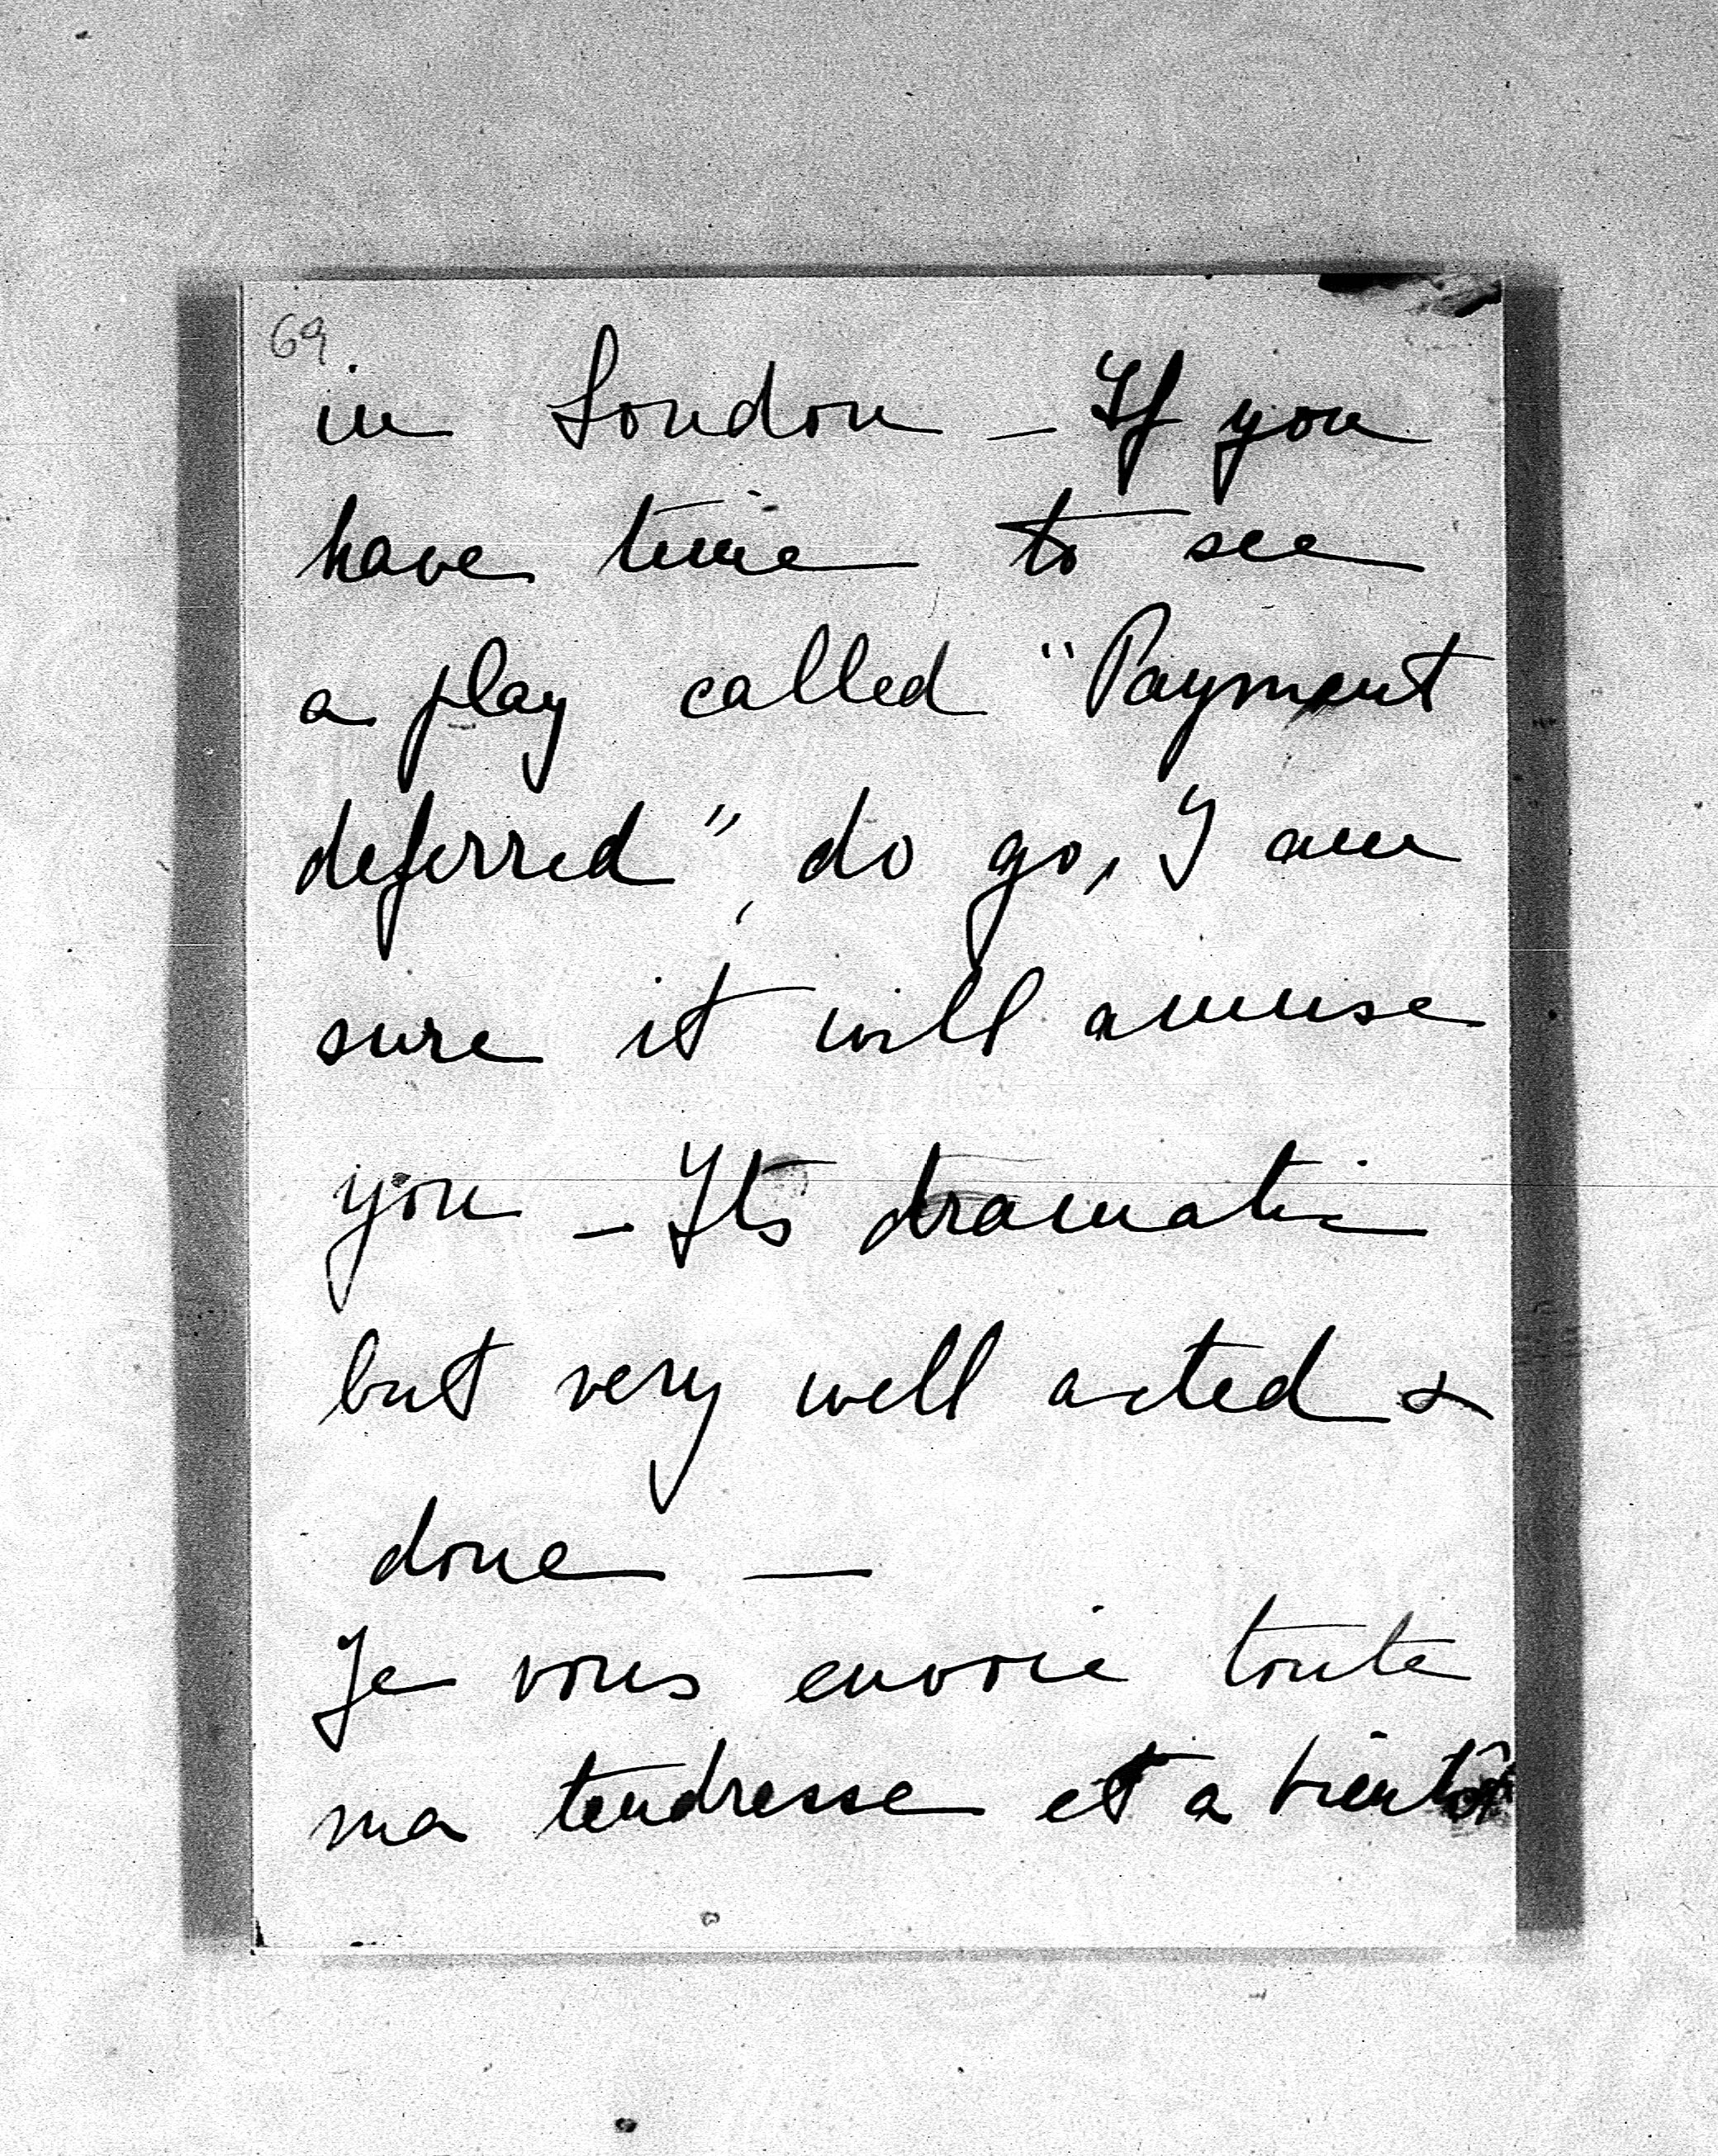 69
in London – If you
have time to see
a play called "Payment
deferred" do go, I am
sure it will amuse
you – Its dramatic
but very well acted &
done –
Je vous envoie toute
ma tendresse et a bientôt